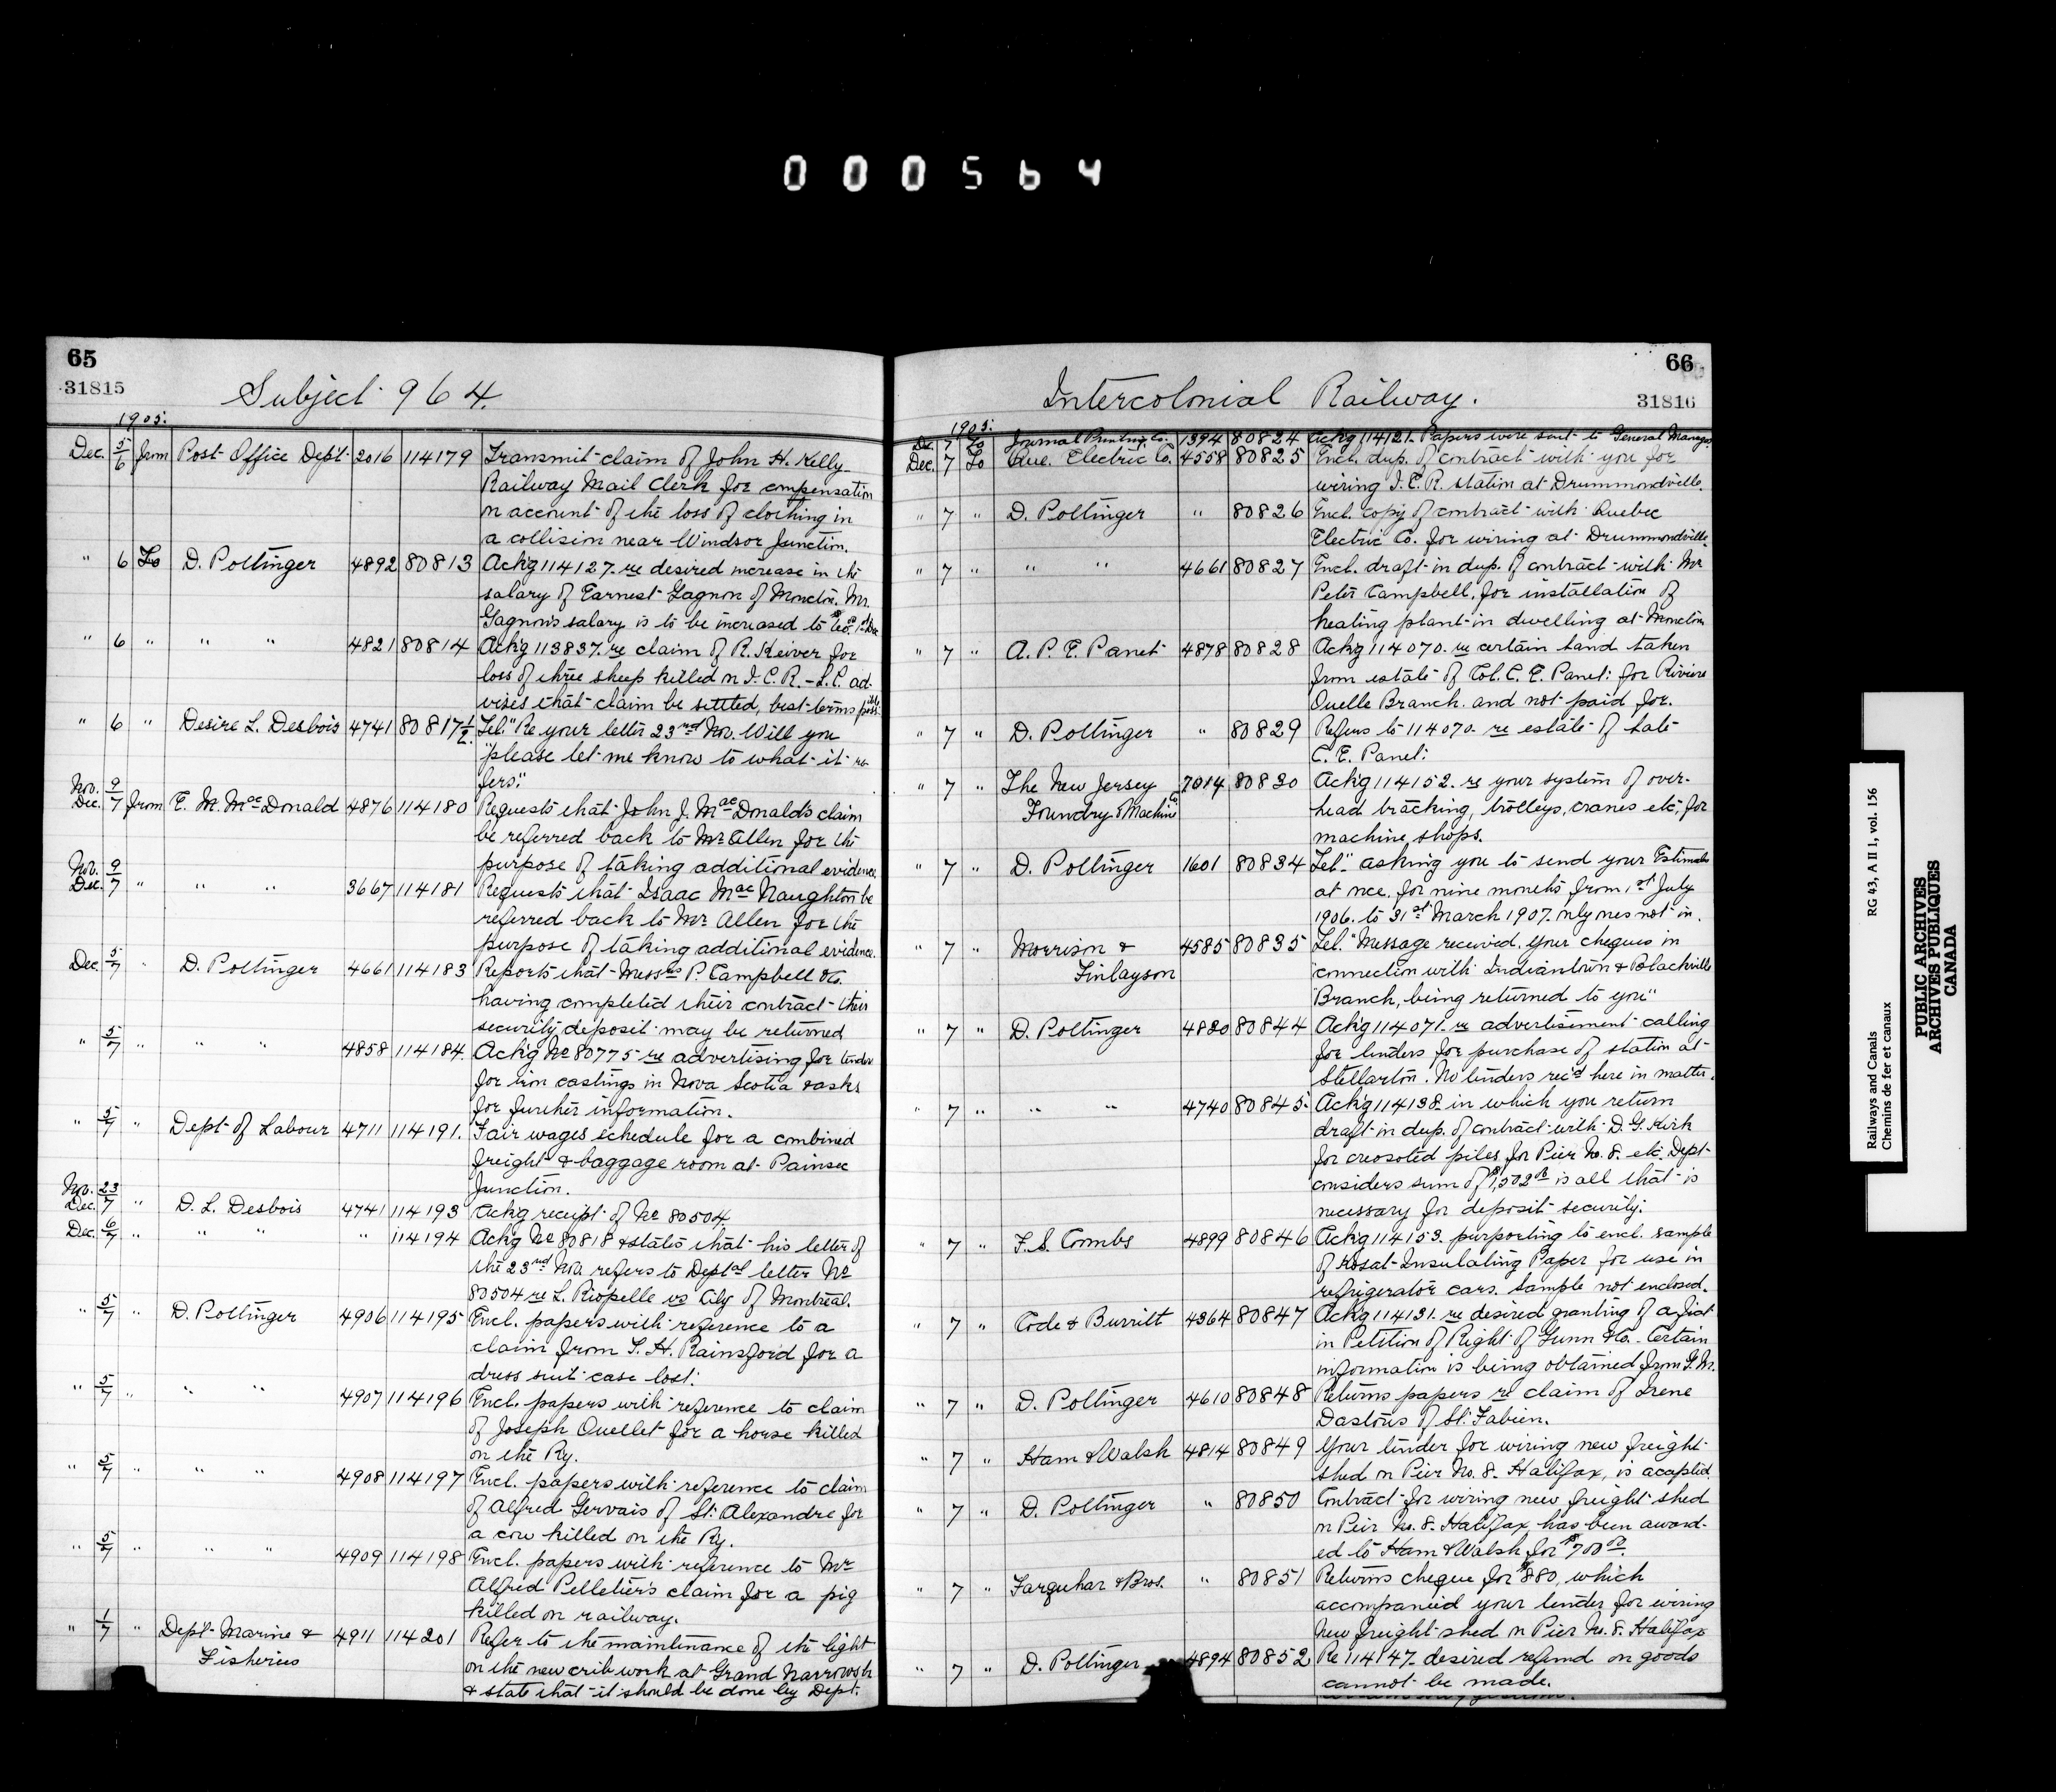 000564
65
31815
Subject 964.
1905.
Dec. 5/6 from Post Office Dept 2016 114179 Transmit claim of John H. Kelly
Railway Mail Clerk for compensation
on account of the loss of clothing in
a collision near Windsor Junction.
" 6 To D. Pottinger 4892 80813 Ackg 114127. re desired increase in the
salary of Earnest Gagnon of Moncton. Mr.
Gagnon's salary is to be increased to
" 6 " " " 4821 80814 Ackg 113837. re claim of R. Keiver for
loss of three sheep killed on I.C.R. - L.C. ad-
vises that claim be settled, best terms possible
" 6 " Desire L. Desbois 4741 80817½ Tel. "Re your letter 23rd Nov. Will you
"please let me know to what it re-
fers".
Nov. 9 Dec. 7 from E. M. MacDonald 4876 114180 Requests that John J. MacDonald's claim
be referred back to Mr Allen for the
purpose of taking additional evidence.
Nov. 9 Dec. 7 " " " 3667 114181 Requests that Isaac MacNaughton be
referred back to Mr. Allen for the
purpose of taking additional evidence.
Dec. 5/7 " D. Pottinger 4661 114183 Reports that Messrs P. Campbell &Co.
having completed their contract their
security deposit may be returned
" 5/7 " " " 4858 114184. Ackg No 80775 re advertising for tender
for iron castings in Nova Scotia & asks
for further information.
" 5/7 " Dept of Labour 4711 114191. Fair wages schedule for a combined
freight & baggage room at Painsec
Junction.
Nov. 23 Dec. 7 " D. L. Desbois 4741 114193 Ackg receipt of No 80504.
Dec. 6/7 " " " " 114194 Ackg No 80818 & states that his letter of
the 23rd Nov. refers to Deptal letter No
80504 re L. Riopelle vs City of Montreal.
" 5/7 " D. Pottinger 4906 114195 Encl. papers with reference to a
claim from T. H. Rainsford for a
dress suit case lost.
" 5/7 " " " 4907 114196 Encl. papers with reference to claim
of Joseph Ouellet for a horse killed
on the Ry.
" 5/7 " " " 4908 114197 Encl. papers with reference to claim
of Alfred Gervais of St. Alexandre for
a cow killed on the Ry.
" 5/7 " " " 4909 114198 Encl. papers with reference to Mr
Alfred Pelletier's claim for a pig
killed on railway.
" 1/7 " Dept Marine & Fisheries 4911 114201 Refer to the maintenance of the light
on the new crib work at Grand Narrows
& state that it should be done by Dept.
66
31816
Intercolonial Railway.
1905.
Dec 7 To Journal Printing Co. 1394 80824 Ackg 114121. Papers were sent to General Manager
Dec. 7 To Que. Electric Co. 4558 80825 Encl. dup. of contract with you for
wiring I.C.R. station at Drummondville.
" 7 " D. Pottinger " 80826 Encl. copy of contract with Quebec
Electric Co. for wiring at Drummondville.
" 7 " " " 4661 80827 Encl. draft in dup. of contract with Mr
Peter Campbell, for installation of
heating plant in dwelling at Moncton
" 7 " A. P. E. Panet 4878 80828 Ackg 114070. re certain land taken
from estate of Col. C. E. Panet: for Riviere
Ouelle Branch. and not paid for.
" 7 " D. Pottinger " 80829 Refers to 114070. re estate of late
C. E. Panet:
" 7 " The New Jersey Foundry & Machine 7014 80830 Ackg 114152. re your system of over-
head tracking, trolleys, cranes etc, for
machine shops.
" 7 " D. Pottinger 1601 80834 Tel. asking you to send your Estimates
at once. for nine months from 1st July
1906. to 31st March 1907. only ones not in.
" 7 " Morrison & Finlayson 4585 80835 Tel. "Message received. Your cheques in
"connection with Indiantown & Blackville
"Branch, being returned to you"
" 7 " D. Pottinger 4820 80844 Ackg 114071. re advertisement calling
for tenders for purchase of station at
Stellarton. No tenders rec'd here in matter.
" 7 " " " 4740 80845. Ackg 114138 in which you return
draft in dup. of contract with D. G. Kirk
for creosoted piles for Pier No. 8. etc. Dept
considers sum of is all that is
necessary for deposit security.
" 7 " F. S. Combs 4899 80846 Ackg 114153. purporting to encl. sample
of Insulating Paper for use in
refrigerator cars. Sample not enclosed.
" 7 " Code & Burritt 4364 80847 Ackg 114131. re desired granting of a fiat
in Petition of Right of Gunn &Co. - Certain
information is being obtained from G. M.
" 7 " D. Pottinger 4610 80848 Returns papers re claim of Irene
Dastous of St. Fabien.
" 7 " Ham & Walsh 4814 80849 Your tender for wiring new freight
shed on Pier No. 8. Halifax, is accepted
" 7 " D. Pottinger " 80850 Contract for wiring new freight shed
on Pier No. 8. Halifax, has been award-
ed to Ham & Walsh for $700 00.
" 7 " Farquhar & Bros. " 80851 Returns cheque for $880, which
accompanied your tender for wiring
New freight shed on Pier No. 8. Halifax
" 7 " D. Pottinger 4894 80852 Re 114147. desired refund on goods
cannot be made.
Railways and Canals RG 43, A II 1, vol. 156
Chemins de fer et canaux
PUBLIC ARCHIVES
ARCHIVES PUBLIQUES
CANADA